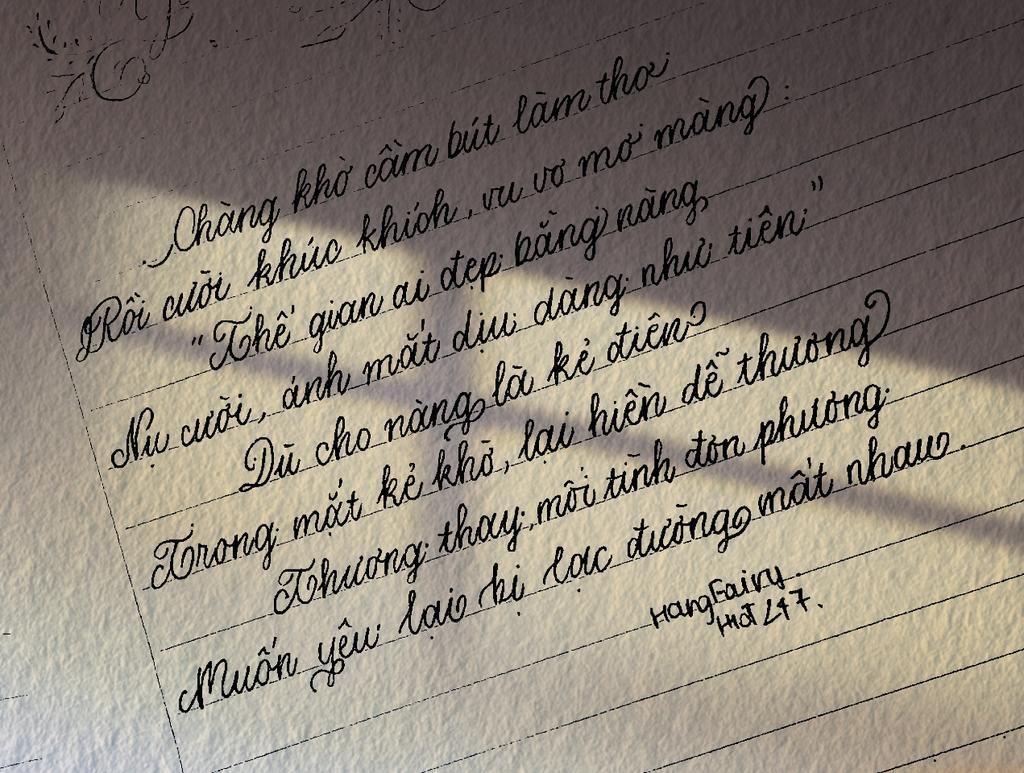 Chàng khờ cầm bút làm thơ
Rồi cười khúc khích, vu vơ mơ màng:
"Thế gian ai đẹp bằng nàng
Nụ cười, ánh mắt dịu dàng như tiên."
Dù cho nàng là kẻ điên
Trong mắt kẻ khờ, lại hiền dễ thương
Thương thay, mối tình đơn phương
Muốn yêu lại bị lạc đường mất nhau.
HangFairy.